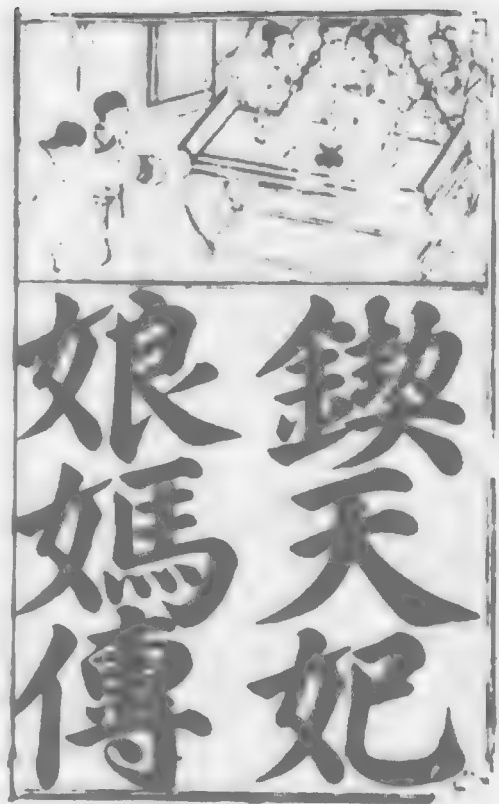 鍥天妃
娘媽傳